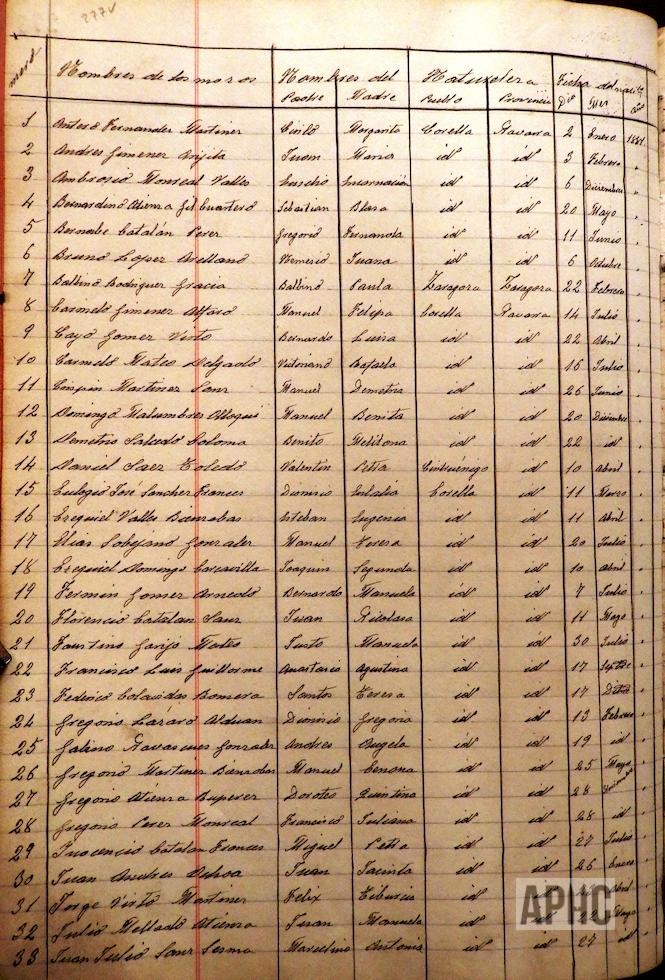 277v
Nombres de los mozos Nombres del Naturaleza Fecha del nacito
Padre Madre Pueblo Provincia Dia Mes Año
1 Antero Fernandez Martinez Cirilo Margarita Corella Navarra 2 Enero 1881
2 Andres Gimenez Juan Maria id id 3 Febrero "
3 Ambrosio Monreal Valles Eusebio Encarnación id id 6 Diciembre "
4 Bernardino Atienza Gil Cuartero Sebastian Blasa id id 20 Mayo "
5 Bernabe Catalán Perez Gregorio Fernanda id id 11 Junio "
6 Bruno Lopez Arellano Nemesio Juana id id 6 Octubre "
7 Balbino Rodriguez Gracia Balbino Paula Zaragoza Zaragoza 22 Febrero "
8 Carmelo Gimenez Alfaro Manuel Felipa Corella Navarra 14 Julio "
9 Cayo Gomez Virto Bernardo Luisa id id 22 Abril "
10 Carmelo Mateo Delgado Victoriano Rafaela id id 16 Julio "
11 Crispin Martinez Sanz Manuel Demetria id id 26 Junio "
12 Domingo Malumbres Manuel Benita id id 20 Diciembre "
13 Demetrio Salcedo Coloma Benito Melitona id id 22 id "
14 Daniel Saez Toledo Valentin Petra Cintruénigo id 10 Abril "
15 Eulogio José Sanchez Frances Dionisio Eulalia Corella id 11 Marzo "
16 Ezequiel Valles Bienzobas Esteban Eugenia id id 11 Abril "
17 Elias Sobejano Gonzalez Manuel Teresa id id 20 Julio "
18 Ezequiel Domingo Carcavilla Joaquin Segunda id id 10 Abril "
19 Fermin Gomez Arnedo Bernardo Manuela id id 7 Julio "
20 Florencio Catalan Sanz Juan Nicolasa id id 11 Mayo "
21 Faustino Garijo Mateo Justo Manuela id id 30 Julio "
22 Francisco Luis Guillorme Anastasio Agustina id id 17 Septbre "
23 Federico Romera Santos Teresa id id 17 "
24 Gregorio Lázaro Alduan Dionisio Gregoria id id 13 Febrero "
25 Galino Navascues Gonzalez Andres Angela id id 19 id "
26 Gregorio Martinez Bienzobas Manuel Cenona id id 25 Mayo "
27 Gregorio Atienza Ruperez Doroteo Quintina id id 28 "
28 Gregorio Perez Monreal Francisco Juliana id id 28 id "
29 Inocencio Catalan Frances Miguel Petra id id 27 Julio "
30 Juan Andres Ochoa Juan Jacinta id id 26 Enero "
31 Jorge Virto Martinez Felix Tiburcia id id Abril "
32 Julio Mellado Atienza Juan Manuela id id Mayo "
33 Juan Julio Sanz Sesma Marcelino Antonia id id 27 id "
APHC